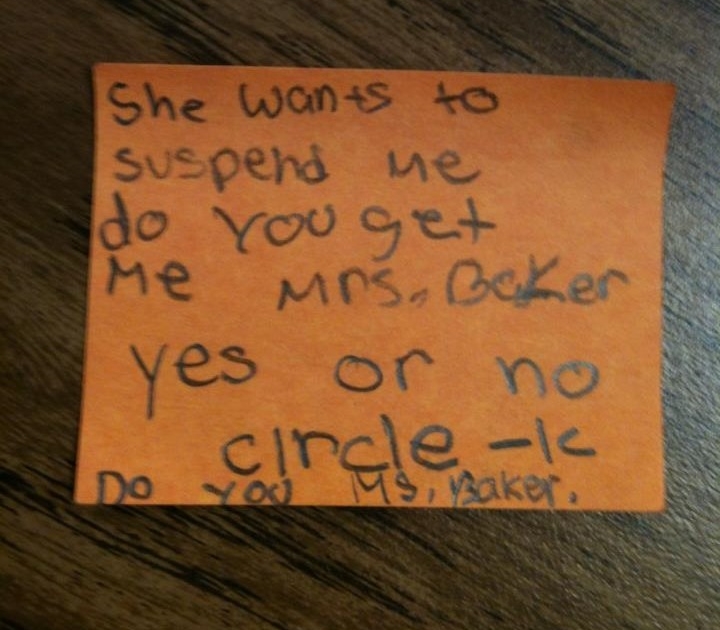 She wants to
suspend me
do you get
Me Mrs. Baker
yes or no
circle -k
Do you Ms. Baker.